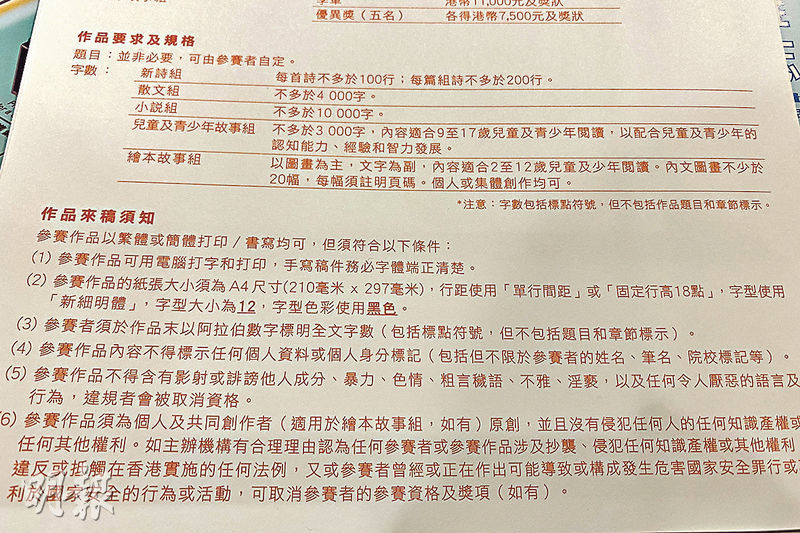 季軍 港幣11,000元及獎狀
優異獎（五名） 各得港幣7,500元及獎狀
作品要求及規格
題目：並非必要，可由參賽者自定。
字數： 新詩組 每首詩不多於100行；每篇組詩不多於200行。
散文組 不多於4 000字。
小説組 不多於10 000字。
兒童及青少年故事組 不多於3 000字，內容適合9至17歲兒童及青少年閱讀，以配合兒童及青少年的
認知能力、經驗和智力發展。
繪本故事組 以圖畫為主，文字為副，內容適合2至12歲兒童及少年閱讀。內文圖畫不少於
20幅，每幅須註明頁碼。個人或集體創作均可。
*注意：字數包括標點符號，但不包括作品題目和章節標示。
作品來稿須知
參賽作品以繁體或簡體打印／書寫均可，但須符合以下條件：
(1) 參賽作品可用電腦打字和打印，手寫稿件務必字體端正清楚。
(2) 參賽作品的紙張大小須為 A4 尺寸(210毫米 x 297毫米)，行距使用「單行間距」或「固定行高18點」，字型使用
「新細明體」，字型大小為12，字型色彩使用黑色。
(3) 參賽者須於作品末以阿拉伯數字標明全文字數（包括標點符號，但不包括題目和章節標示）。
(4) 參賽作品內容不得標示任何個人資料或個人身分標記（包括但不限於參賽者的姓名、筆名、院校標記等）。
(5) 參賽作品不得含有影射或誹謗他人成分、暴力、色情、粗言穢語、不雅、淫褻，以及任何令人厭惡的語言及
行為，違規者會被取消資格。
(6) 參賽作品須為個人及共同創作者（適用於繪本故事組，如有）原創，並且沒有侵犯任何人的任何知識產權或
任何其他權利。如主辦機構有合理理由認為任何參賽者或參賽作品涉及抄襲、侵犯任何知識產權或其他權利
違反或抵觸在香港實施的任何法例，又或參賽者曾經或正在作出可能導致或構成發生危害國家安全罪行或
利於國家安全的行為或活動，可取消參賽者的參賽資格及獎項（如有）。
明報